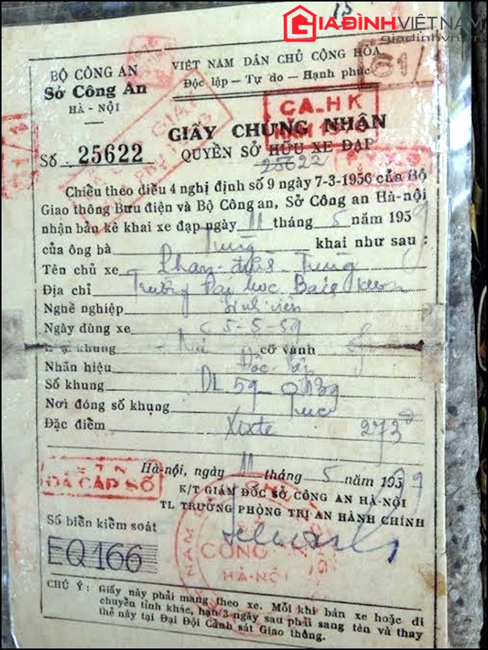 GIAĐÌNHVIỆTNAM
giadinhvn.vn
BỘ CÔNG AN
VIỆT NAM DÂN CHỦ CỘNG HÒA
Sở Công An
Độc lập — Tự do — Hạnh phúc
HÀ - NỘI
61
CA-HK
GIẤY CHỨNG NHẬN
Số 25622
QUYỀN SỞ HỮU XE ĐẠP
25622
Chiều theo điều 4 nghị định số 9 ngày 7-3-1956 của Bộ
Giao thông Bưu điện và Bộ Công an, Sở Công an Hà-nội
nhận bản kê khai xe đạp ngày 11 tháng 5 năm 1959
của ông bà Trung khai như sau :
Tên chủ xe Phan Trung
Địa chỉ Trường Đại học Bách khoa
Nghề nghiệp Sinh viên
Ngày dùng xe 5-5-59
khung cỡ vành
Nhãn hiệu Độc lập
Số khung DL 59
Nơi đóng số khung Trục
Đặc điểm Xixte 273
Hà-nội, ngày 11 tháng 5 1959
ĐÃ CẤP SỐ
K/T GIÁM ĐỐC SỞ CÔNG AN HÀ-NỘI
TL TRƯỞNG PHÒNG TRỊ AN HÀNH CHÍNH
Số biển kiểm soát
EQ166
CÔNG AN
HÀ-NỘI
CHÚ Ý : Giấy này phải mang theo xe. Mỗi khi bán xe hoặc di
chuyển tỉnh khác, hạn 3 ngày sau phải sang tên và thay
thẻ này tại Đại Đội Cảnh sát Giao thông.